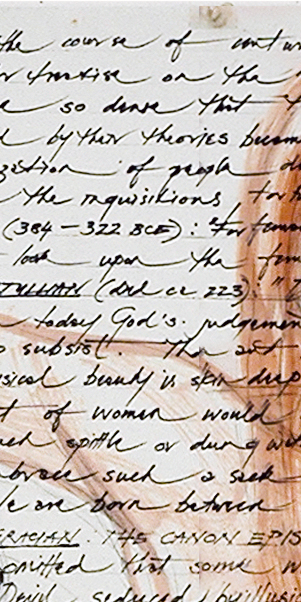 the course of
treatise on the
so dense that
by their theories
of people
the inquisitions for
(384-322 BCE): "For
look upon the
TULLIAN (Died ca 223): "
today God's judgemen
subsist". The
beauty is skin deep
of women would
spittle or dung
brace such a sack
are born between
GRACIAN: THE CANON EPIS
omitted that some w
Devil, seduced by illusi